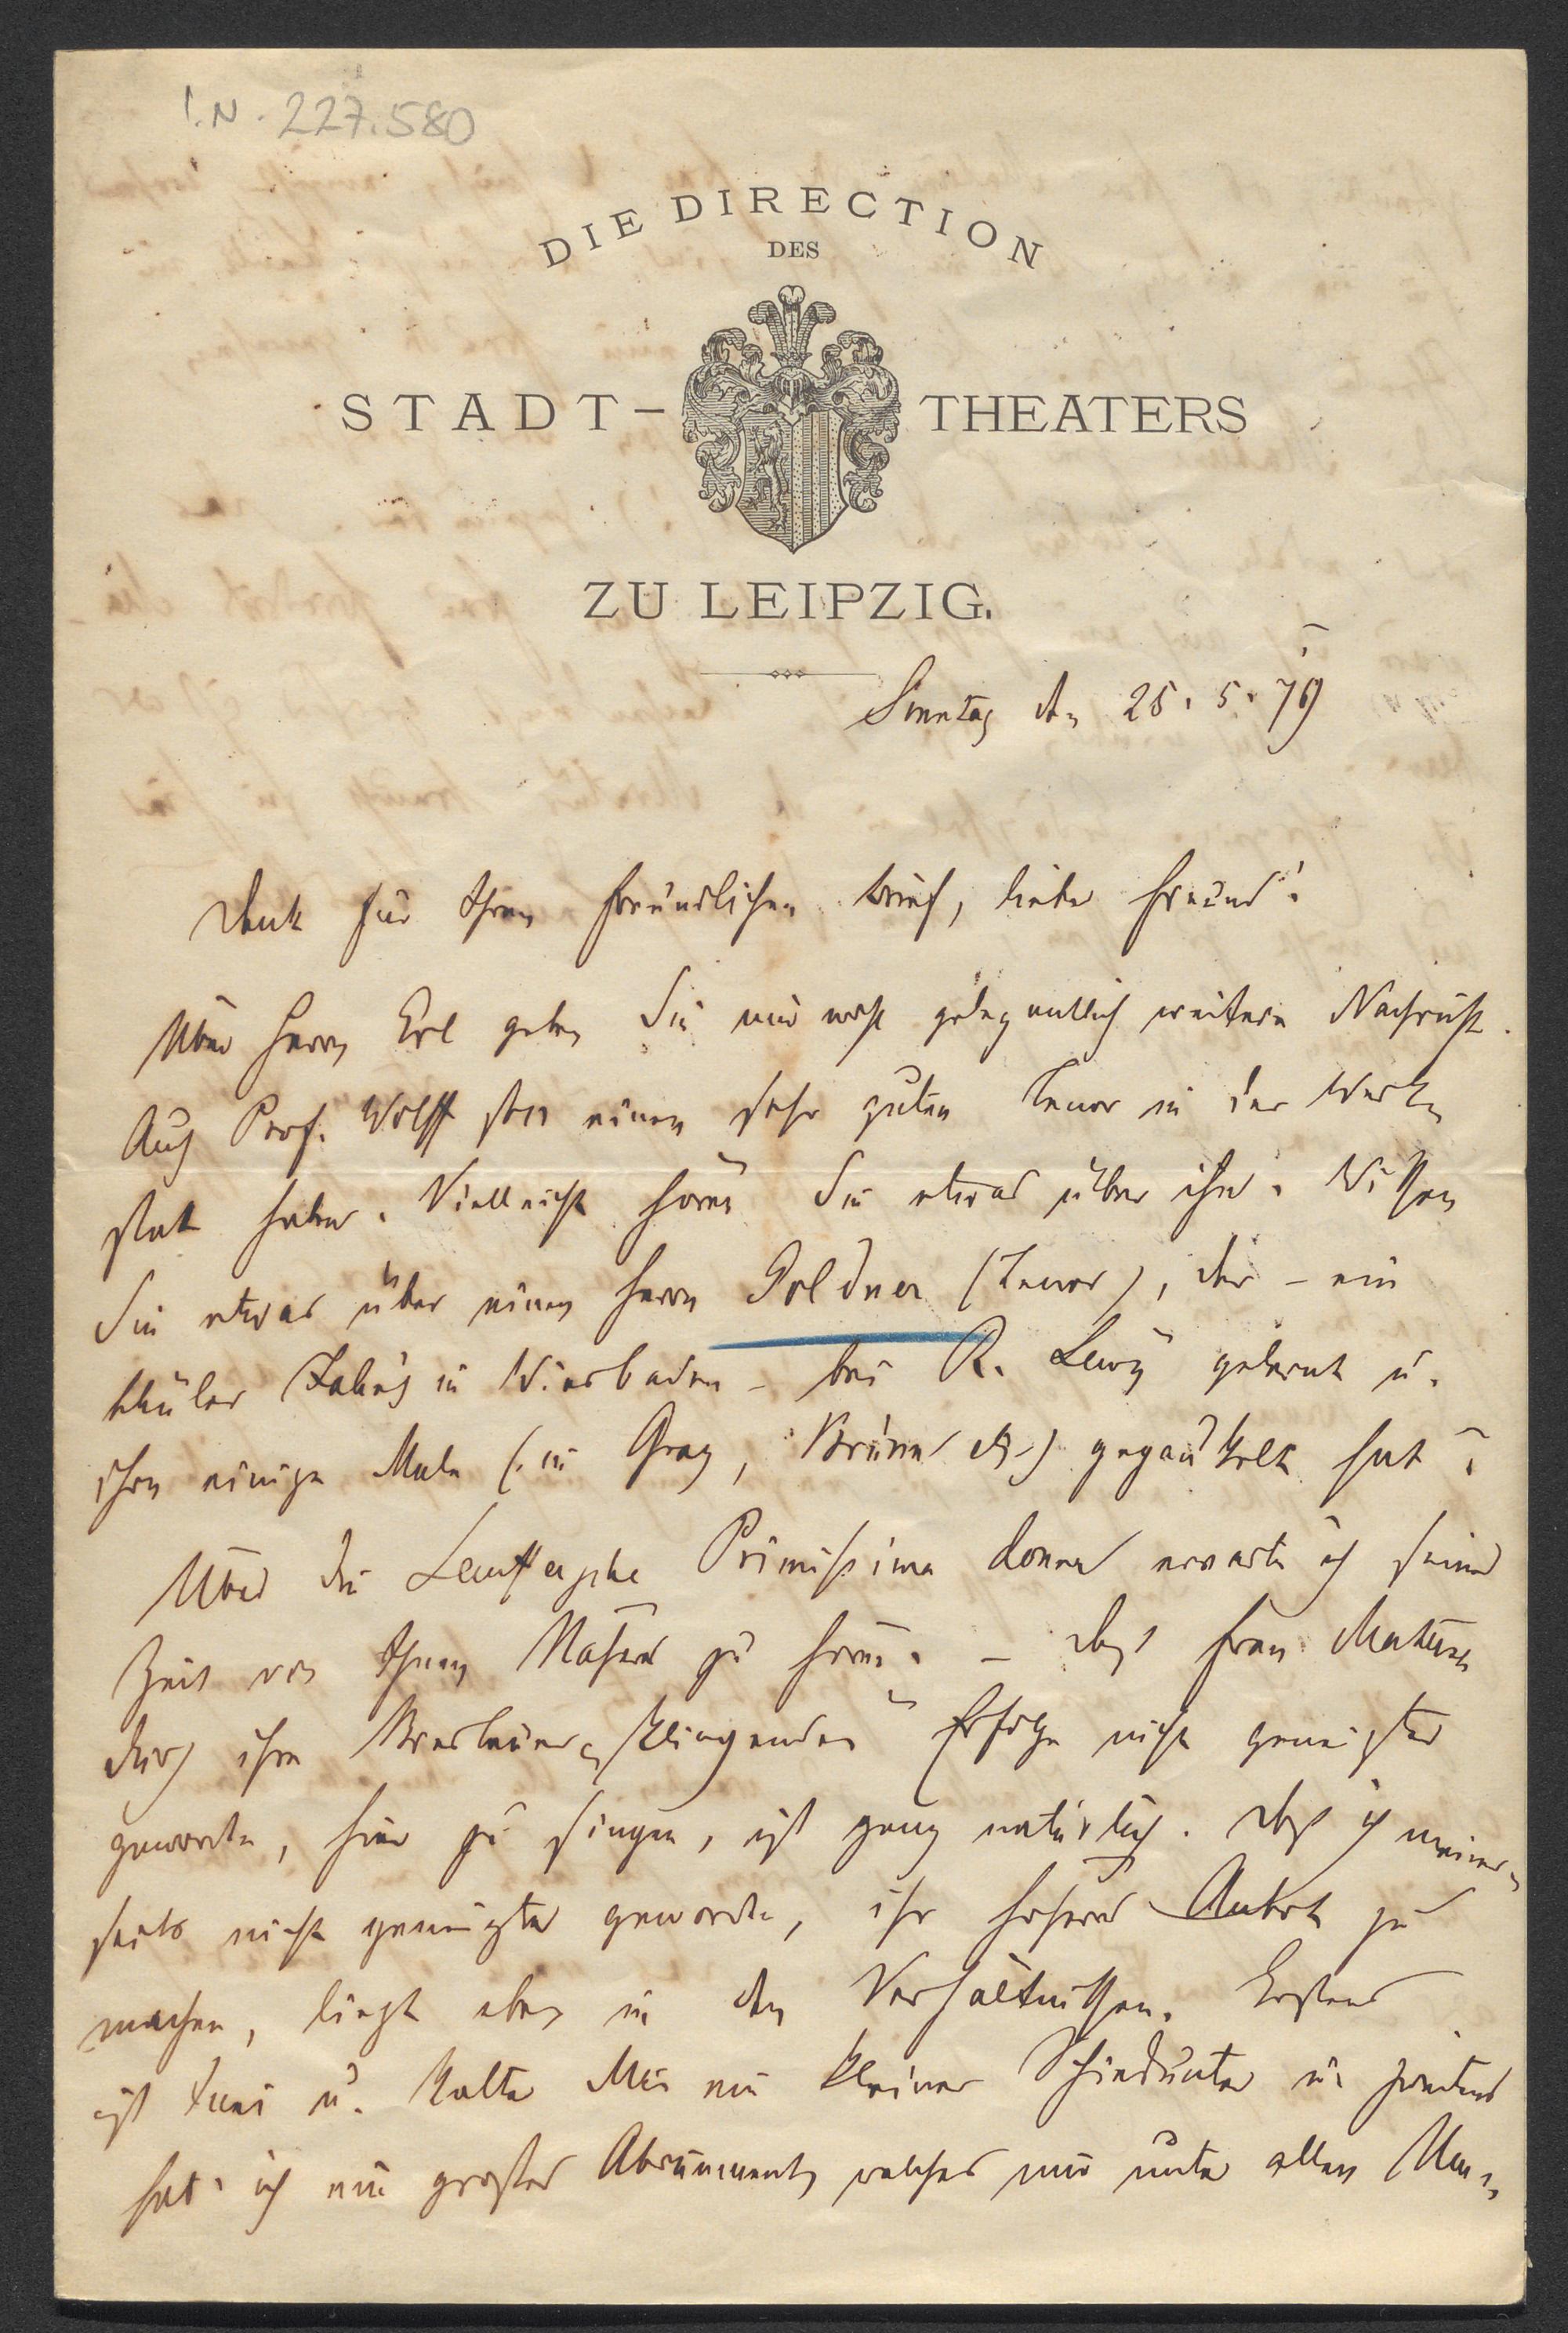 I.N. 227.580
DIE DIRECTION
DES
STADT-THEATERS
ZU LEIPZIG.
Sonntag den 25. 5. 79
Dank für Ihren freundlichen Brief, lieber Freund!
Über Herrn Erl geben Sie mir wohl gelegentlich weitere Nachricht.
Auch Prof. Wolff soll einen sehr guten Tenor in der Werk
statt haben. Vielleicht hören Sie etwas über ihn. Wissen
Sie etwas über einen Herrn Goldner (Tenor), der – ein
Schüler in Wiesbaden – bei R. Lewy gelernt u.
schon einige Male (in Graz, Brünn etc) gegaukelt hat?
Über die Primissima donna erwarte ich seiner
Zeit von Ihnen Näheres zu hören. – Daß Frau
durch ihre Breslauer „klingenden“ Erfolge nicht geneigter
geworden, hier zu singen, ist ganz natürlich. Daß ich meiner-
seits nicht geneigter geworden, ihr höhere Anbote zu
machen, liegt eben in den Verhältnissen. Erstens
ist Juni u. kalter Mai ein kleiner u. zweitens
hab' ich ein großes Abonnement, welches mir unter allen Um-